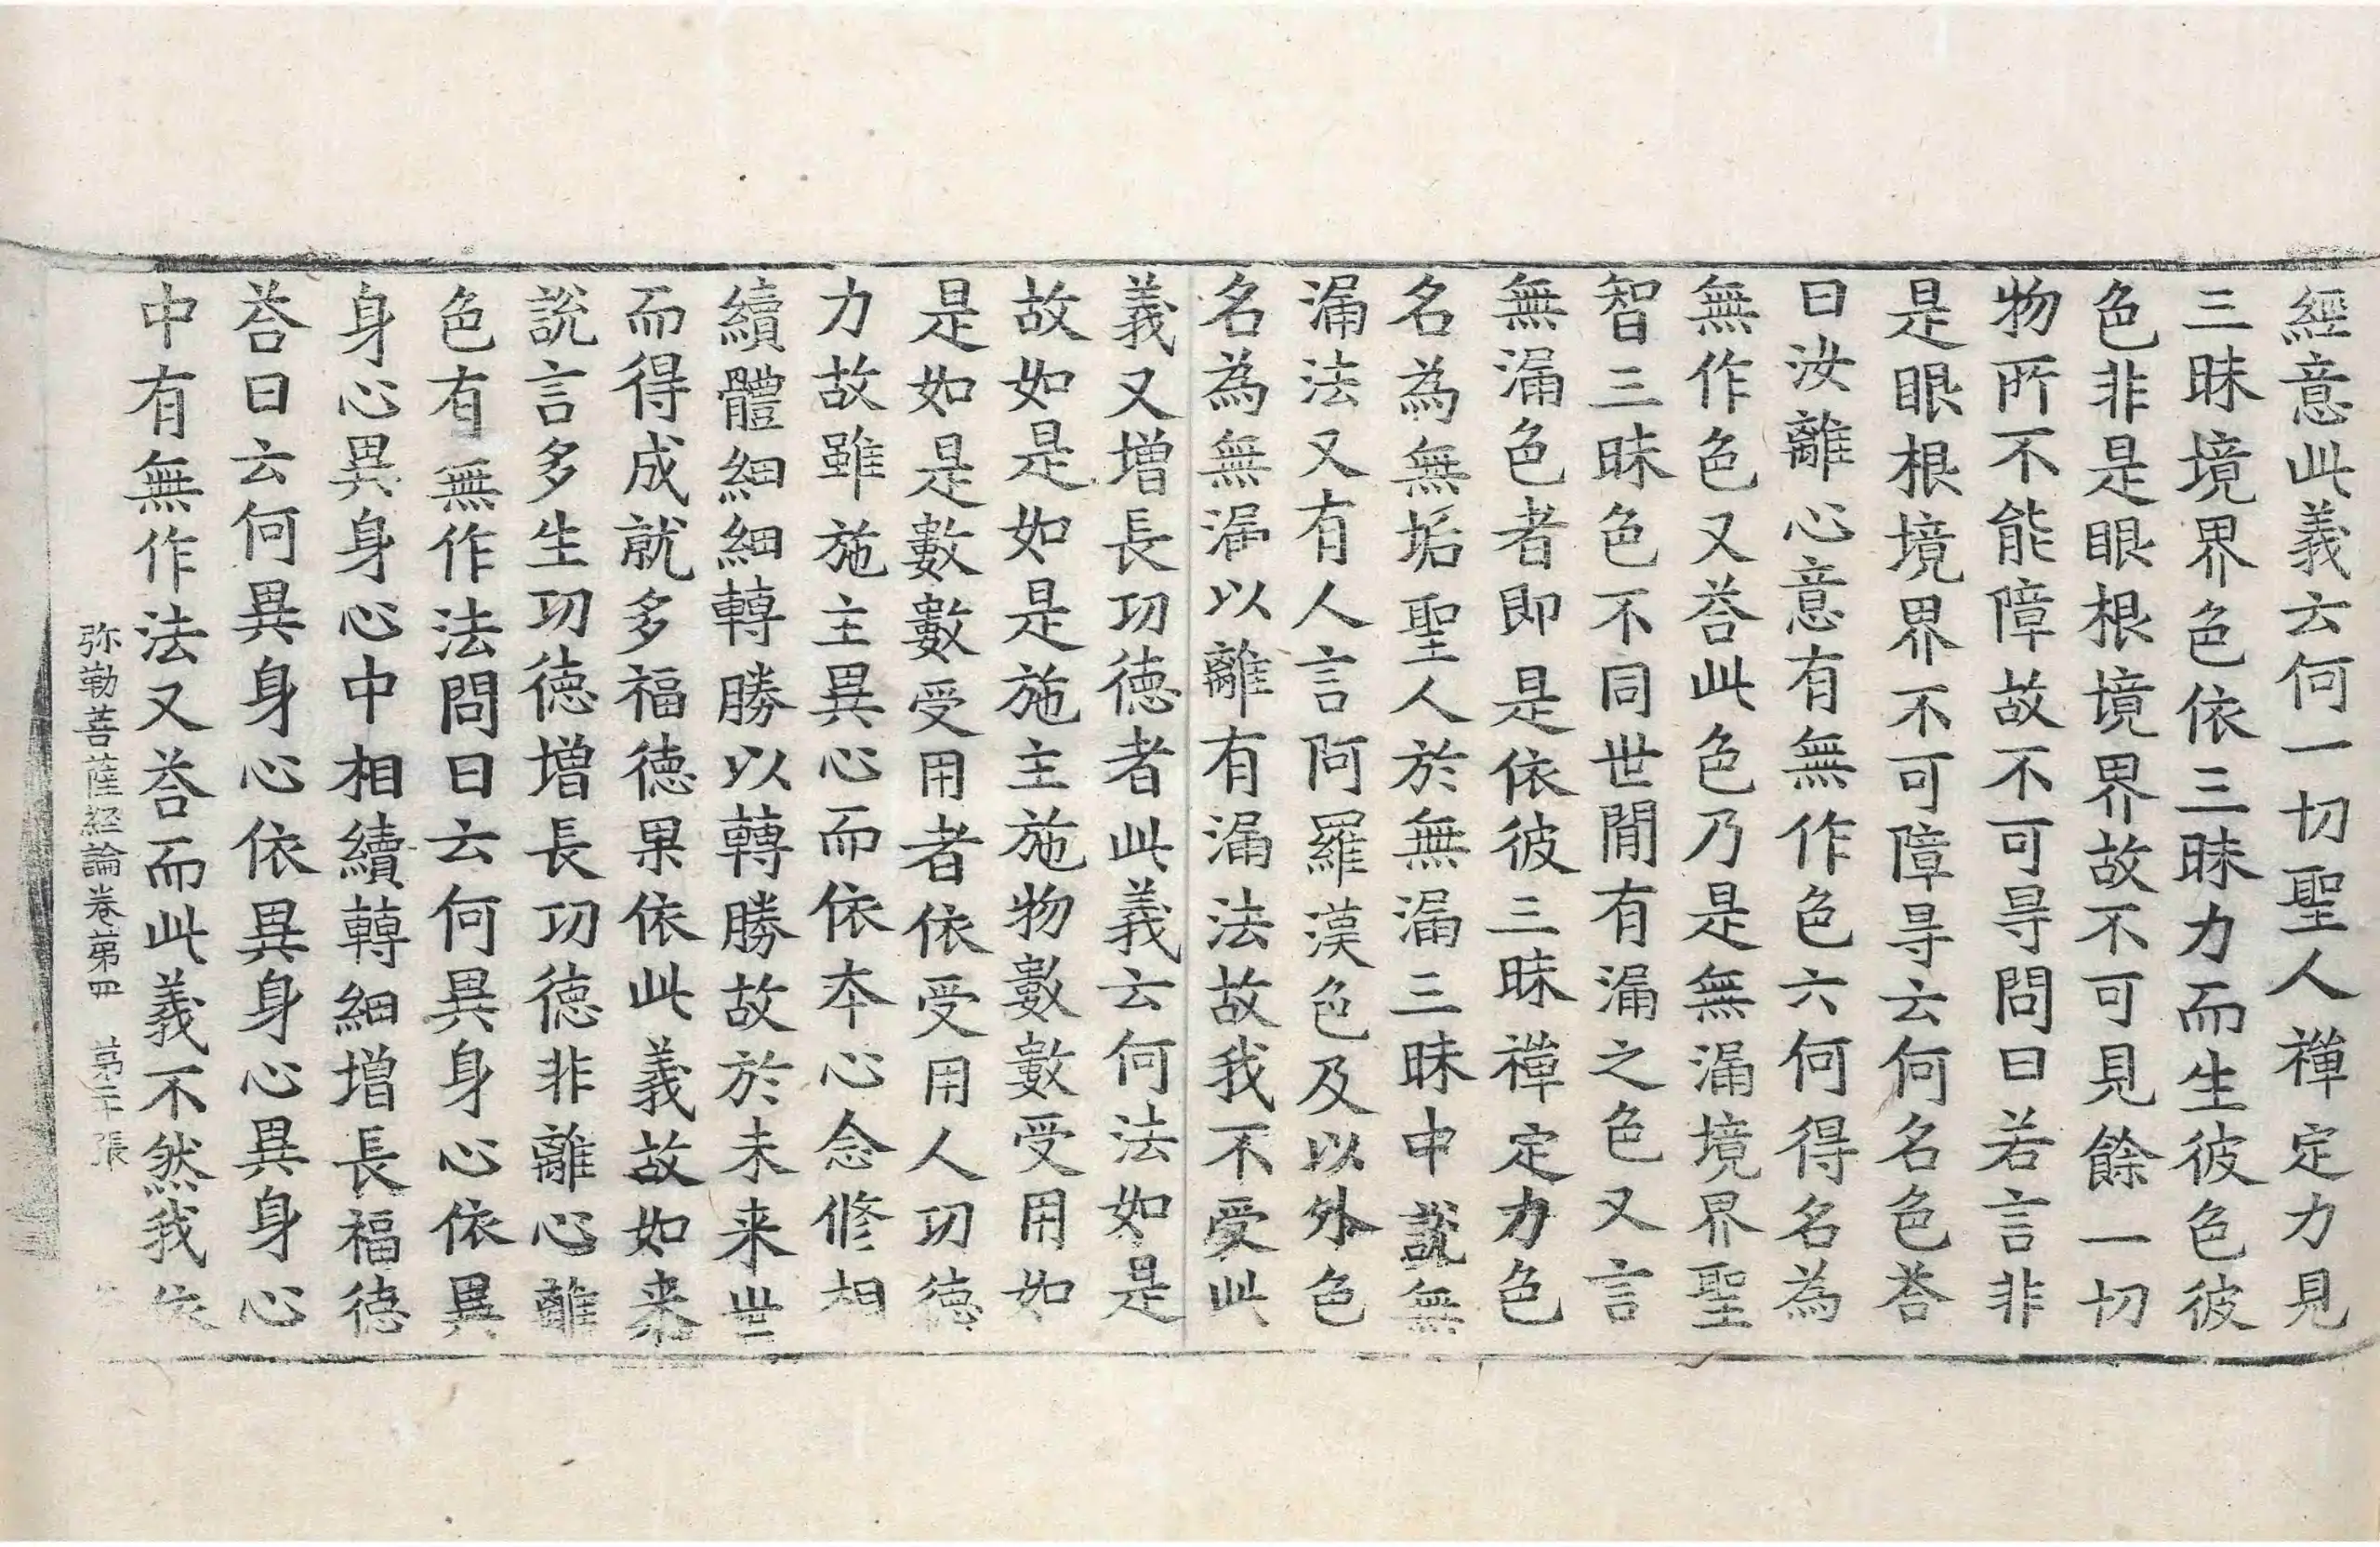 經意此義云何一切聖人禪定力見
三昧境界色依三昧力而生彼色彼
色非是眼根境界故不可見餘一切
物所不能障故不可㝵問曰若言非
是眼根境界不可障㝵云何名色荅
曰汝離心意有無作色六何得名為
無作色又荅此色乃是無漏境界聖
智三昧色不同世閒有漏之色又言
無漏色者即是依彼三昧禪定力色
名為無垢聖人於無漏三昧中説無
漏法又有人言阿羅漢色及以外色
名為無漏以離有漏法故我不受此
義又增長功德者此義云何法如是
故如是如是施主施物數數受用如
是如是數數受用者依受用人功德
力故雖施主異心而依夲心念修相
續體細細轉勝以轉勝故於未来世
而得成就多福德果依此義故如来
説言多生功德增長功德非離心離
色有無作法問曰云何異身心依異
身心異身心中相續轉細增長福德
荅曰云何異身心依異身心異身心
中有無作法又荅而此義不然我依
弥勒菩薩経論卷第四 第二十張